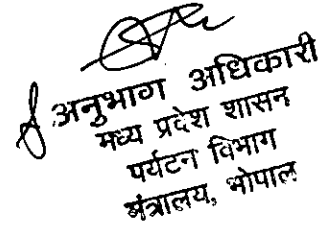 अनुभाग अधिकारी
मध्य प्रदेश शासन
पर्यटन विभाग
मंत्रालय, भोपाल